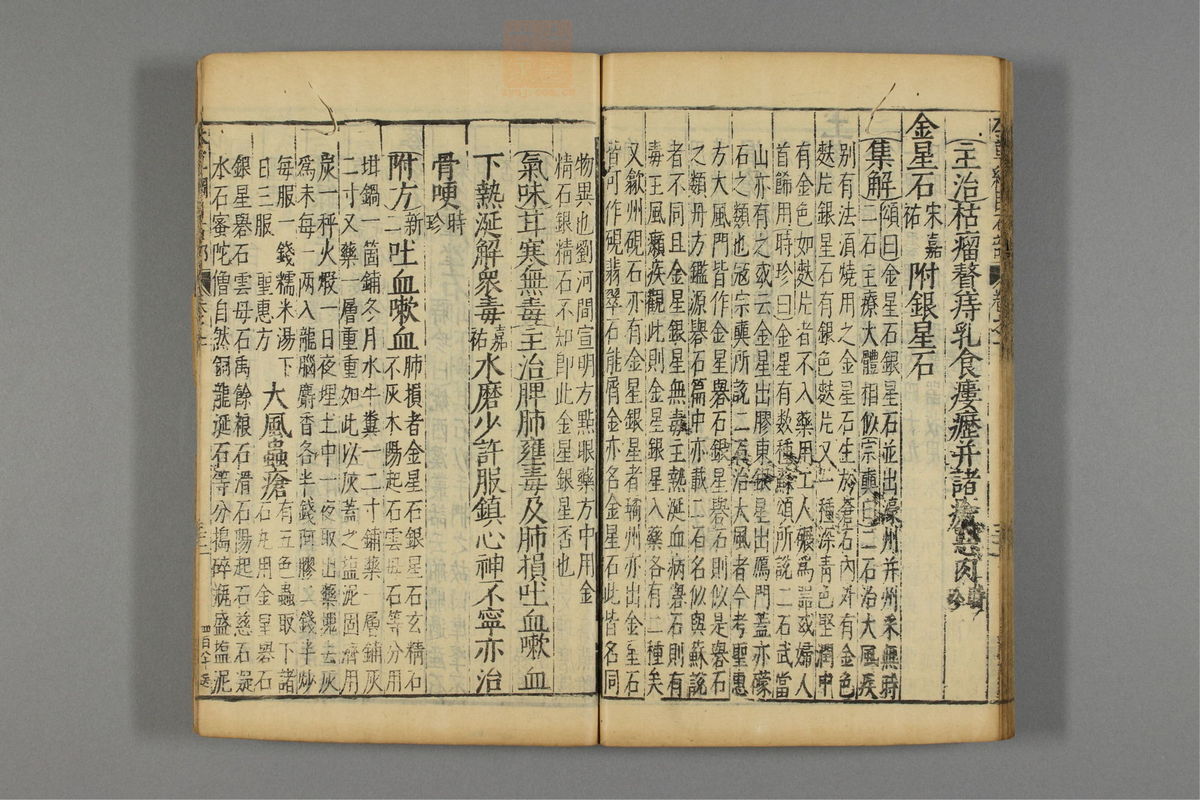 主治枯瘤瘜痔乳食瘻癧并諸瘡惡肉
金星石宋嘉祐附銀星石
集解頌曰金星石銀星石並出濠州并州采無時
二石主療大體相似宗奭曰二石治大風疾
別有法須燒用之金星石生於蒼石內外有金色
麩片銀星石有銀色麩片又一種深青色堅潤中
有金色如麩片者不入藥用工人碾爲器或婦人
首飾用時珍曰金星有數種蘇頌所說二石武當
山亦有之或云金星出膠東銀星出鴈門蓋亦礞
石之類也寇宗奭所說二石治大風者今考聖惠
方大風門皆作金星礜石銀星礜石則似是礜石
之類丹方鑑源礜石篇中亦載二石名似與蘇說
者不同且金星銀星無毒主熱涎血病礜石則有
毒主風癩疾觀此則金星銀星入藥各有二種矣
又歙州硯石亦有金星銀星者瓊州亦出金星石
皆可作硯翡翠石能屑金亦名金星石此皆名同
物異也劉河間宣明方點眼藥方中用金
精石銀精石不知卽此金星銀星否也
氣味甘寒無毒主治脾肺壅毒及肺損吐血嗽血
下熱涎解衆毒嘉祐水磨少許服鎮心神不寧亦治
骨哽時珍
附方新二吐血嗽血肺損者金星石銀星石玄精石
不灰木陽起石雲母石等分用
坩鍋一箇鋪冬月水牛糞一二寸鋪藥一層鋪灰
二寸又藥一層重重如此以灰蓋之塩泥固濟用
炭一秤火煅一日夜埋土中一夜取出藥塊去灰
爲末每一兩入龍腦麝香各半錢阿膠二錢半炒
每服一錢糯米湯下大風蟲瘡有五色蟲取下諸
日三服聖惠方石用金星礜石
銀星礜石雲母石禹餘粮石滑石陽起石慈石凝
水石密陀僧自然銅龍涎石等分搗碎瓶盛塩泥